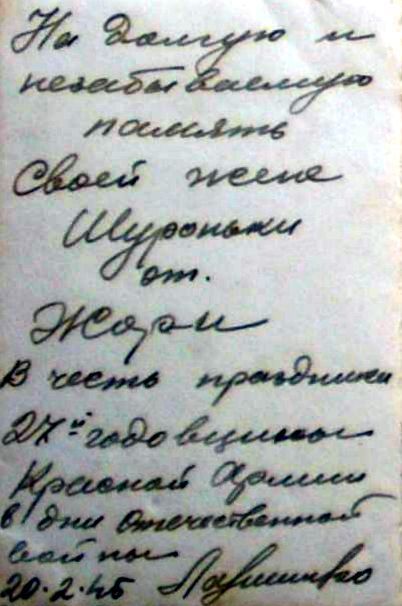 На долгую и
незабываемую
память
Своей жене
Шуроньки
от.
Жори
В честь праздника
27й годовщины
Красной Армии
в дни отечественной
войны
20.2.45